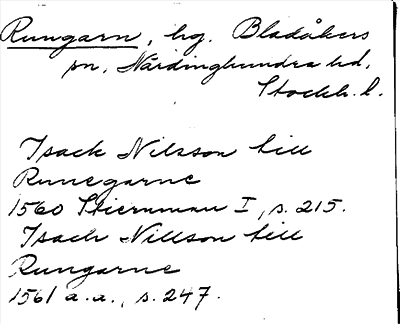 Rungarn, hg. Bladåkers
sn, Närdinghundra hd,
Stockh. l.
Isack Nilsson till
Runegarne
1560 Stiernman I, s. 215.
Isack Nillson till
Rungarne
1561 a.a., s. 247.